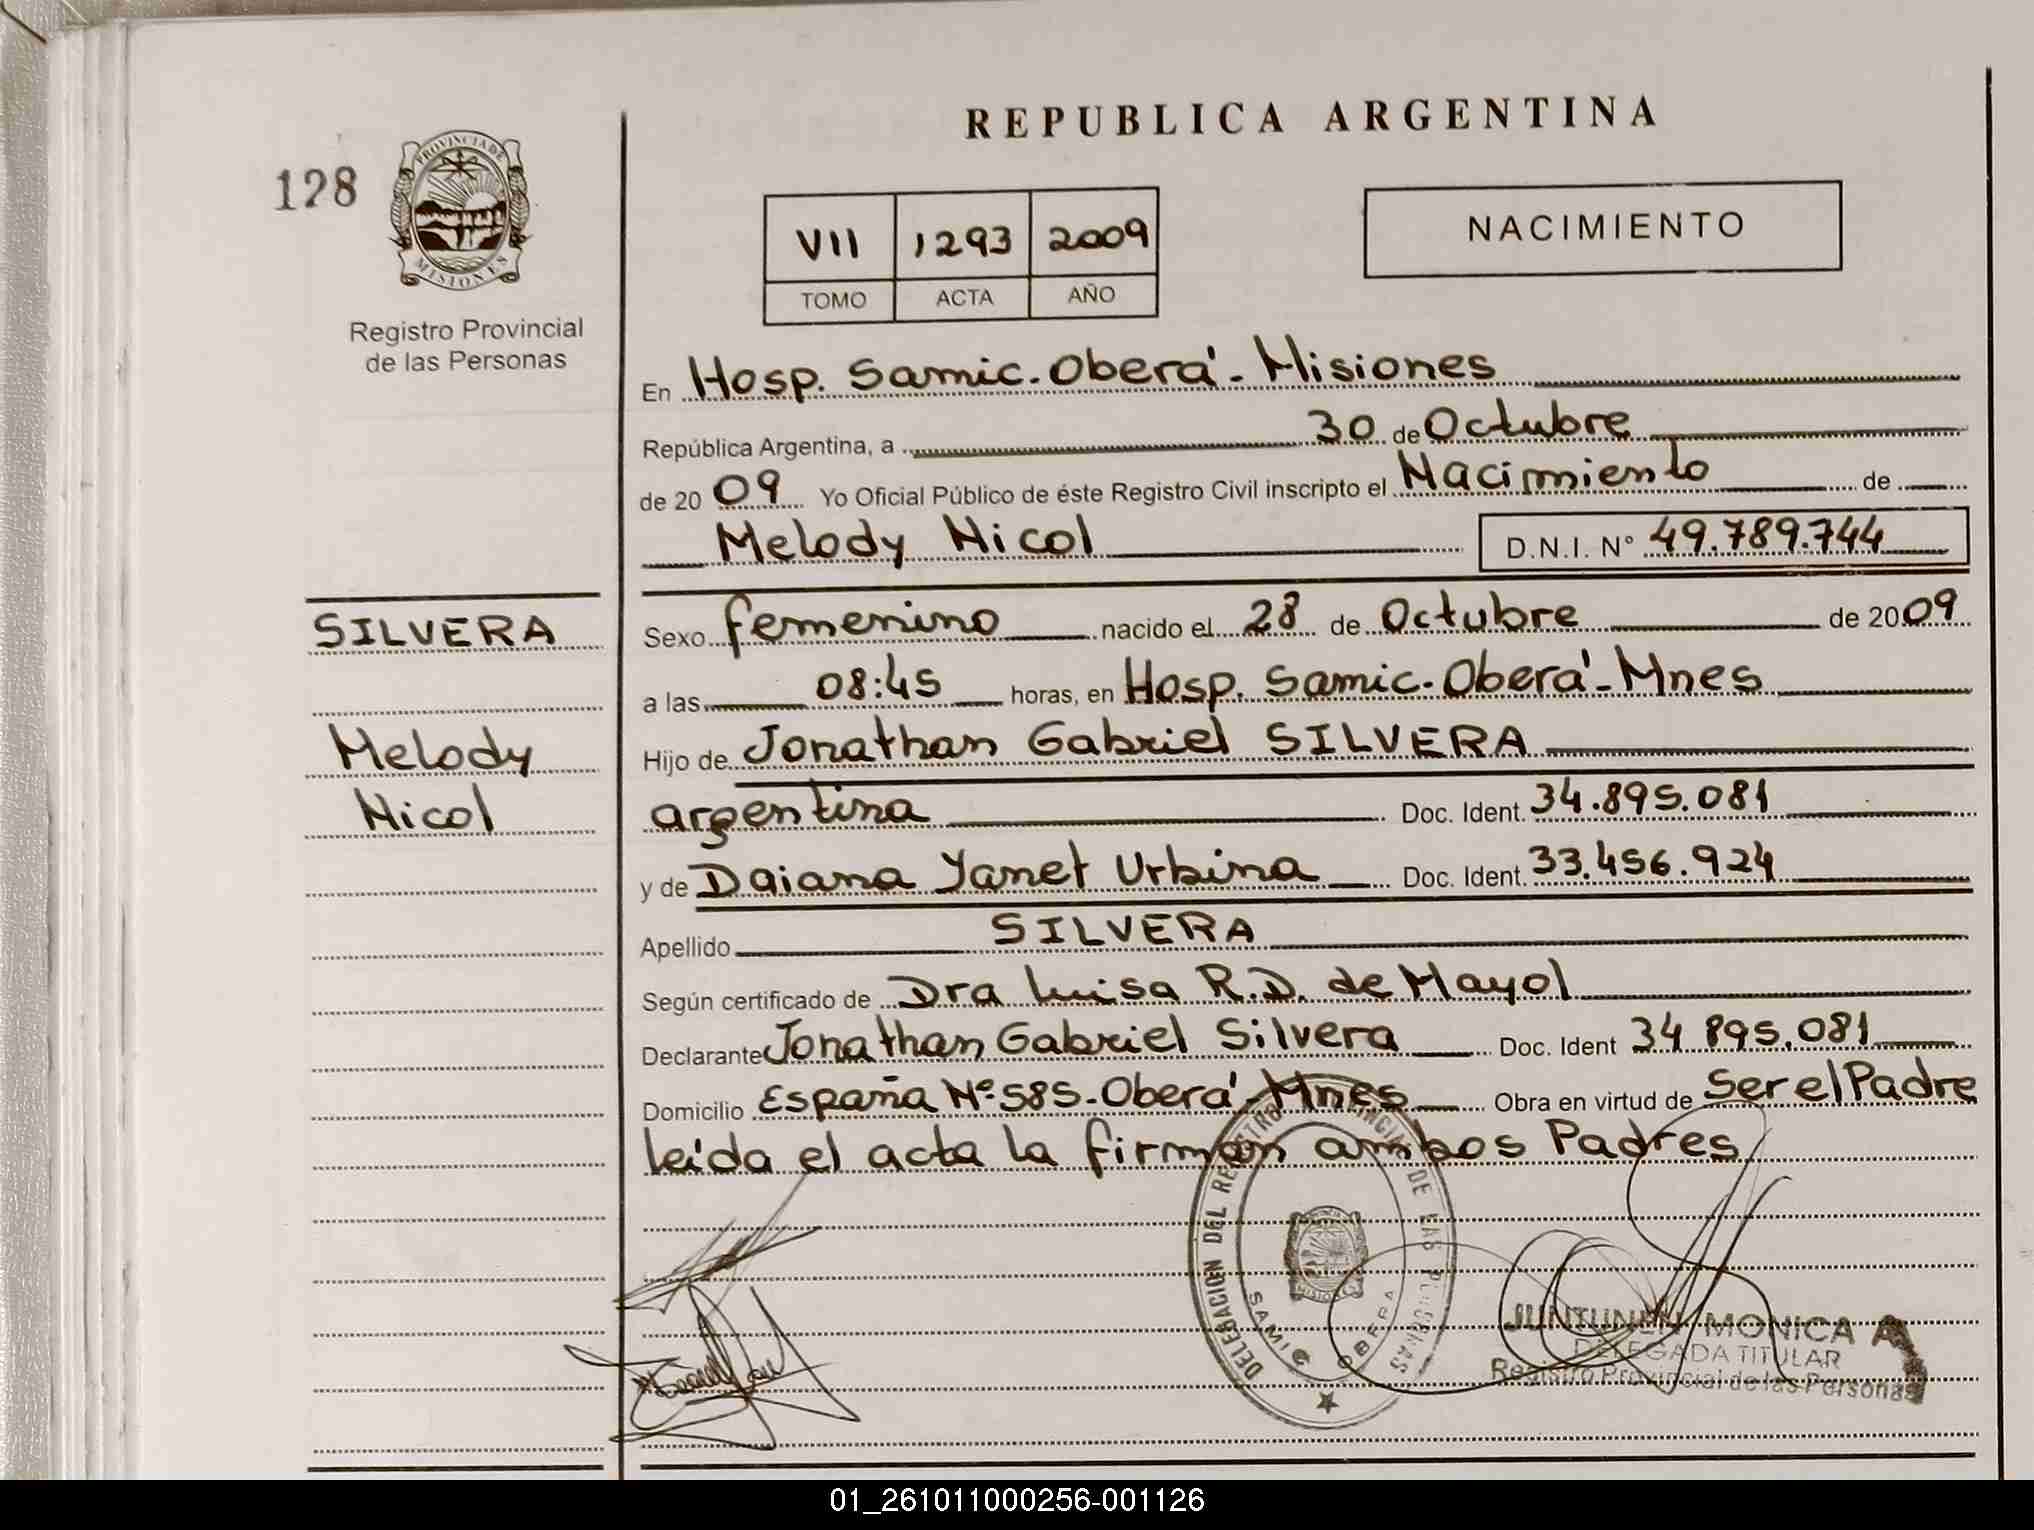 REPUBLICA ARGENTINA
128
PROVINCIA DE
MISIONES
Registro Provincial
de las Personas
VII 1293 2009
TOMO ACTA AÑO
NACIMIENTO
En Hosp. Samic. Oberá - Misiones
República Argentina, a 30 de Octubre
de 2009 Yo Oficial Público de éste Registro Civil inscripto el Nacimiento de
Melody Nicol D.N.I. N° 49.789.744
SILVERA
Melody
Nicol
Sexo femenino nacido el 28 de Octubre de 2009
a las 08:45 horas, en Hosp. Samic. Oberá - Mnes
Hijo de Jonathan Gabriel SILVERA
argentina Doc. Ident. 34.895.081
y de Daiana Yanet Urbina Doc. Ident. 33.456.924
Apellido SILVERA
Según certificado de Dra Luisa R.D. de Mayol
Declarante Jonathan Gabriel Silvera Doc. Ident 34 895.081
Domicilio España N° 585 - Oberá - Mnes Obra en virtud de Ser el Padre
leída el acta la firman ambos Padres
DELEGACION DEL REGISTRO PROVINCIAL DE LAS PERSONAS
SAMIC OBERA
MISIONES
JUNTUNEN MONICA A
DELEGADA TITULAR
Registro Provincial de las Personas
01_261011000256-001126